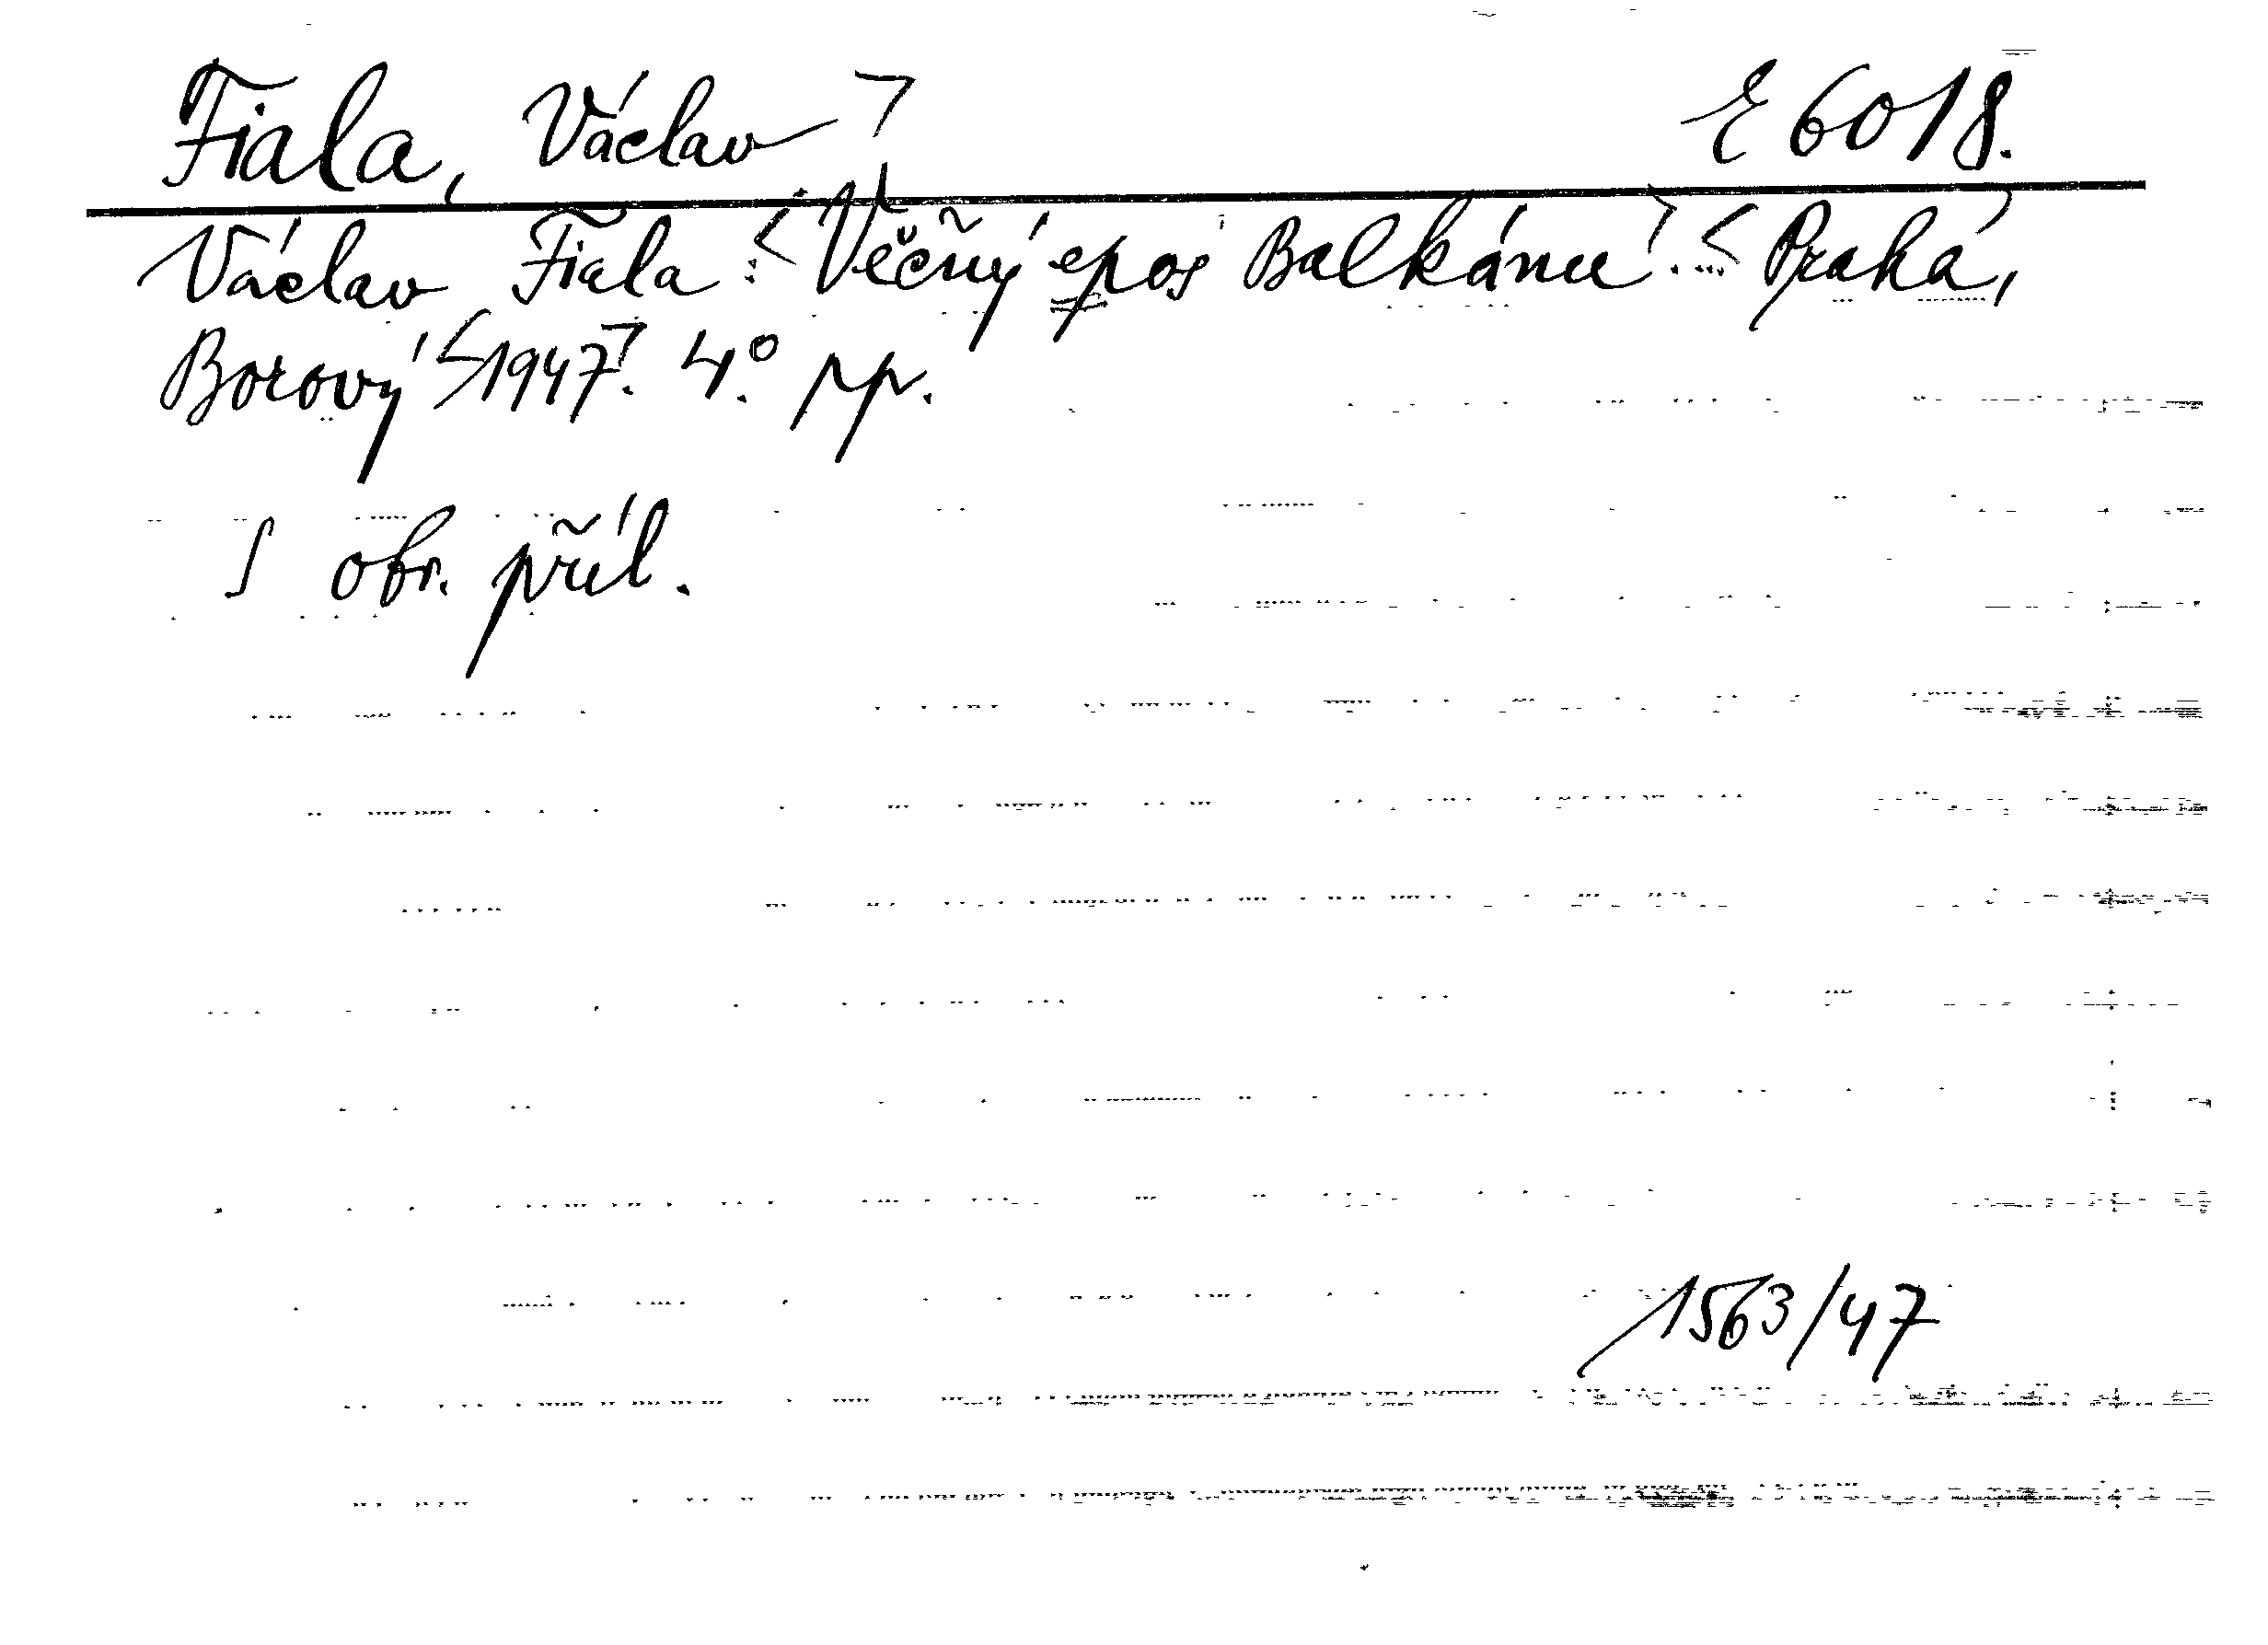 Fiala, Václav E 6018.
Václav Fiala: Věčný epos Balkánu. Praha,
Borový 1947. 4°. pp.
S obr. příl.
1563/47